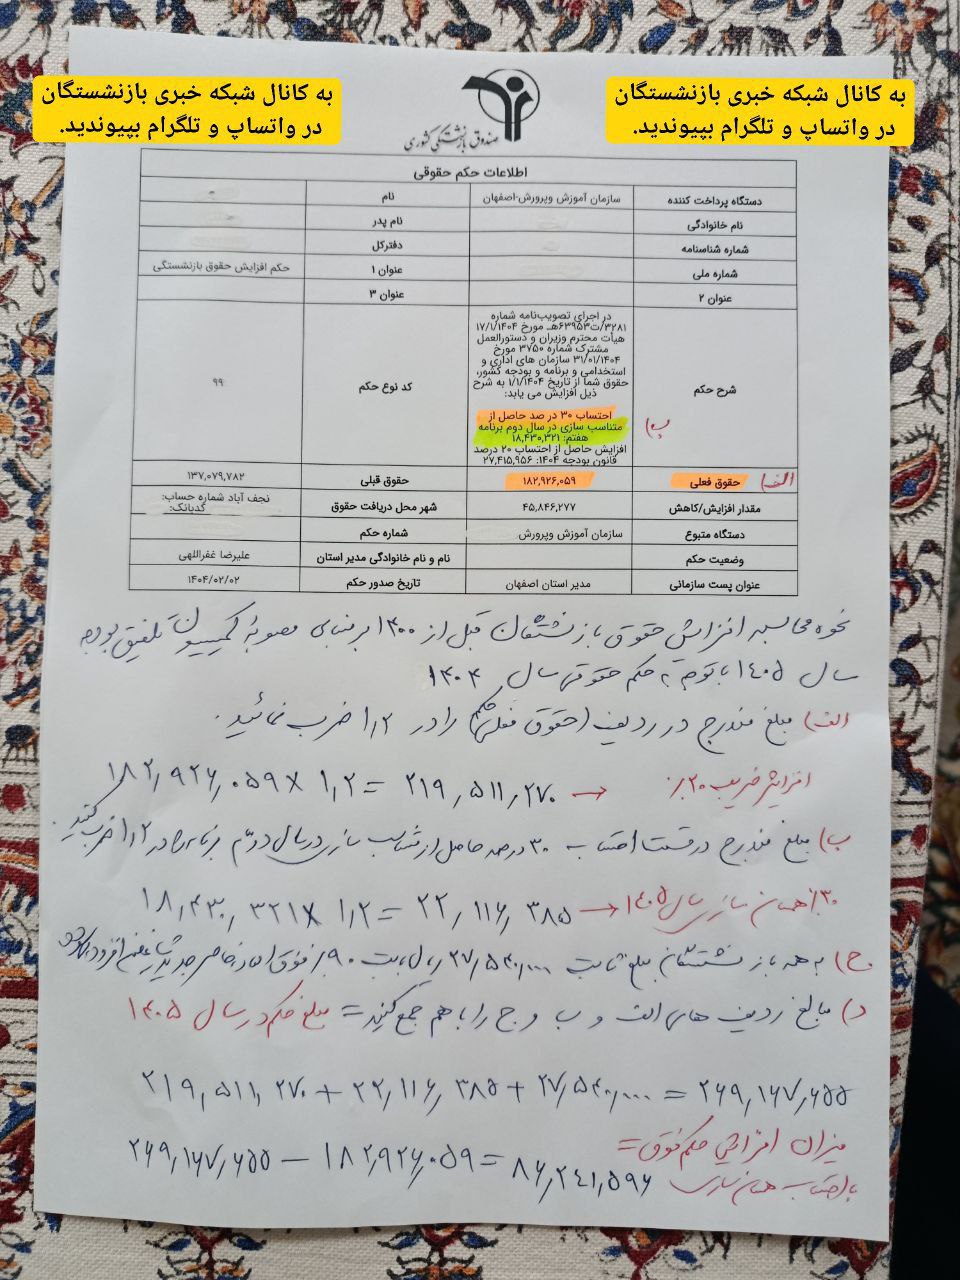 به کانال شبکه خبری بازنشستگان
در واتساپ و تلگرام بپیوندید.
به کانال شبکه خبری بازنشستگان
در واتساپ و تلگرام بپیوندید.
صندوق بازنشستگی کشوری
اطلاعات حکم حقوقی
دستگاه پرداخت کننده سازمان آموزش وپرورش-اصفهان نام
نام خانوادگی نام پدر
شماره شناسنامه دفترکل
شماره ملی عنوان ۱ حکم افزایش حقوق بازنشستگی
عنوان ۲ عنوان ۳
شرح حکم
در اجرای تصویب‌نامه شماره
۳۲۸۱/ت۶۳۹۵۳هـ مورخ ۱۷/۱/۱۴۰۴
هیأت محترم وزیران و دستورالعمل
مشترک شماره ۳۷۵۰ مورخ
۳۱/۰۱/۱۴۰۴ سازمان های اداری و
استخدامی و برنامه و بودجه کشور،
حقوق شما از تاریخ ۱/۱/۱۴۰۴ به شرح
ذیل افزایش می یابد:
احتساب ۳۰ در صد حاصل از
متناسب سازی در سال دوم برنامه
هفتم: ۱۸,۴۳۰,۳۲۱
افزایش حاصل از احتساب ۲۰ درصد
قانون بودجه ۱۴۰۴: ۲۷,۴۱۵,۹۵۶
کد نوع حکم ۹۹
ب)
الف) حقوق فعلی ۱۸۲,۹۲۶,۰۵۹ حقوق قبلی ۱۳۷,۰۷۹,۷۸۲
مقدار افزایش/کاهش ۴۵,۸۴۶,۲۷۷ شهر محل دریافت حقوق نجف آباد شماره حساب:
کدبانک:
دستگاه متبوع سازمان آموزش وپرورش شماره حکم
وضعیت حکم نام و نام خانوادگی مدیر استان علیرضا غفراللهی
عنوان پست سازمانی مدیر استان اصفهان تاریخ صدور حکم ۱۴۰۴/۰۲/۰۲
نحوه محاسبه افزایش حقوق بازنشستگان قبل از ۱۴۰۰ بر مبنای مصوبهٔ کمیسیون تلفیق بودجه
سال ۱۴۰۵ با توجه به حکم حقوقی سال ۱۴۰۴
الف) مبلغ مندرج در ردیف (حقوق فعلی حکم) را در ۱٫۲ ضرب نمائید.
افزایش ضریب ۲۰٪ → ۱۸۲,۹۲۶,۰۵۹ × ۱٫۲ = ۲۱۹,۵۱۱,۲۷۰
ب) مبلغ مندرج در قسمت احتساب ۳۰ درصد حاصل از متناسب سازی در سال دوم برنامه را در ۱٫۲ ضرب کنید.
۳۰٪ همسان سازی سال ۱۴۰۵ → ۱۸,۴۳۰,۳۲۱ × ۱٫۲ = ۲۲,۱۱۶,۳۸۵
ج) به همه بازنشستگان مبلغ ثابت ۲۷,۵۴۰,۰۰۰ ریال بابت ۹۰٪ فوق العاده خاص جدید شاغلین افزوده می شود
د) مبالغ ردیف های الف و ب و ج را با هم جمع کنید = مبلغ حکم در سال ۱۴۰۵
۲۱۹,۵۱۱,۲۷۰ + ۲۲,۱۱۶,۳۸۵ + ۲۷,۵۴۰,۰۰۰ = ۲۶۹,۱۶۷,۶۵۵
میزان افزایش حکم فوق =
با احتساب همسان سازی ۲۶۹,۱۶۷,۶۵۵ − ۱۸۲,۹۲۶,۰۵۹ = ۸۶,۲۴۱,۵۹۶